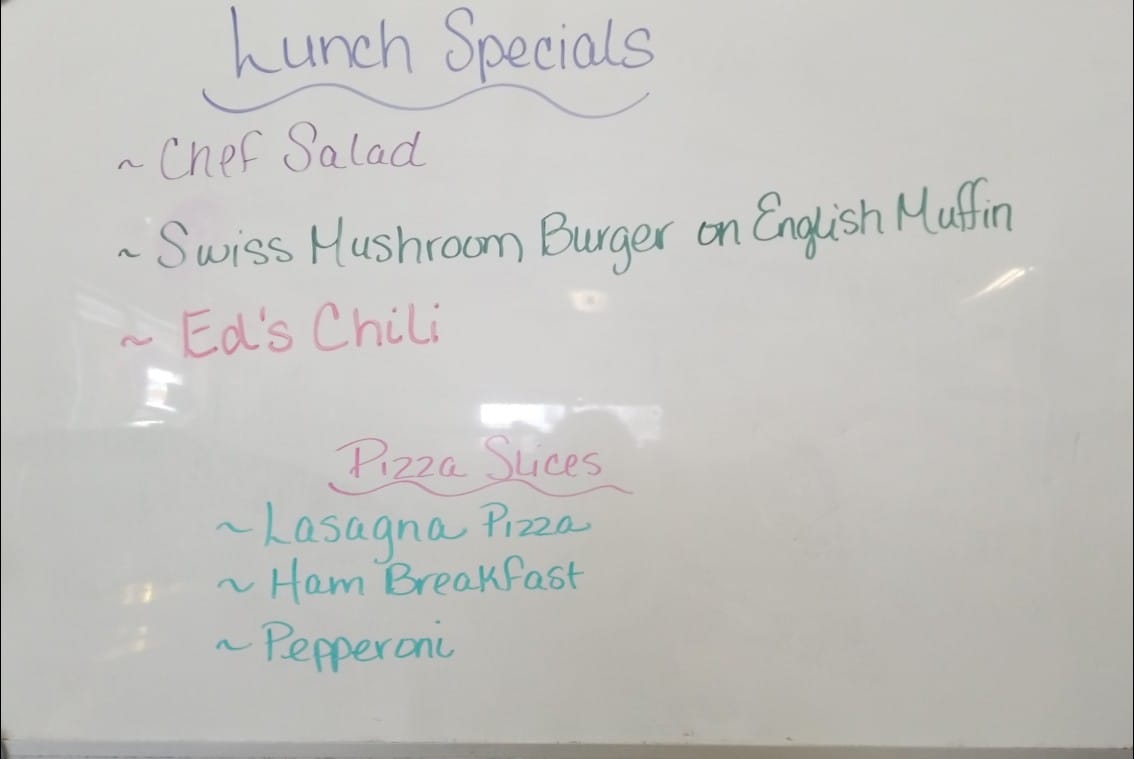 Lunch Specials
~ Chef Salad
~ Swiss Mushroom Burger on English Muffin
~ Ed's Chili
Pizza Slices
~ Lasagna Pizza
~ Ham Breakfast
~ Pepperoni